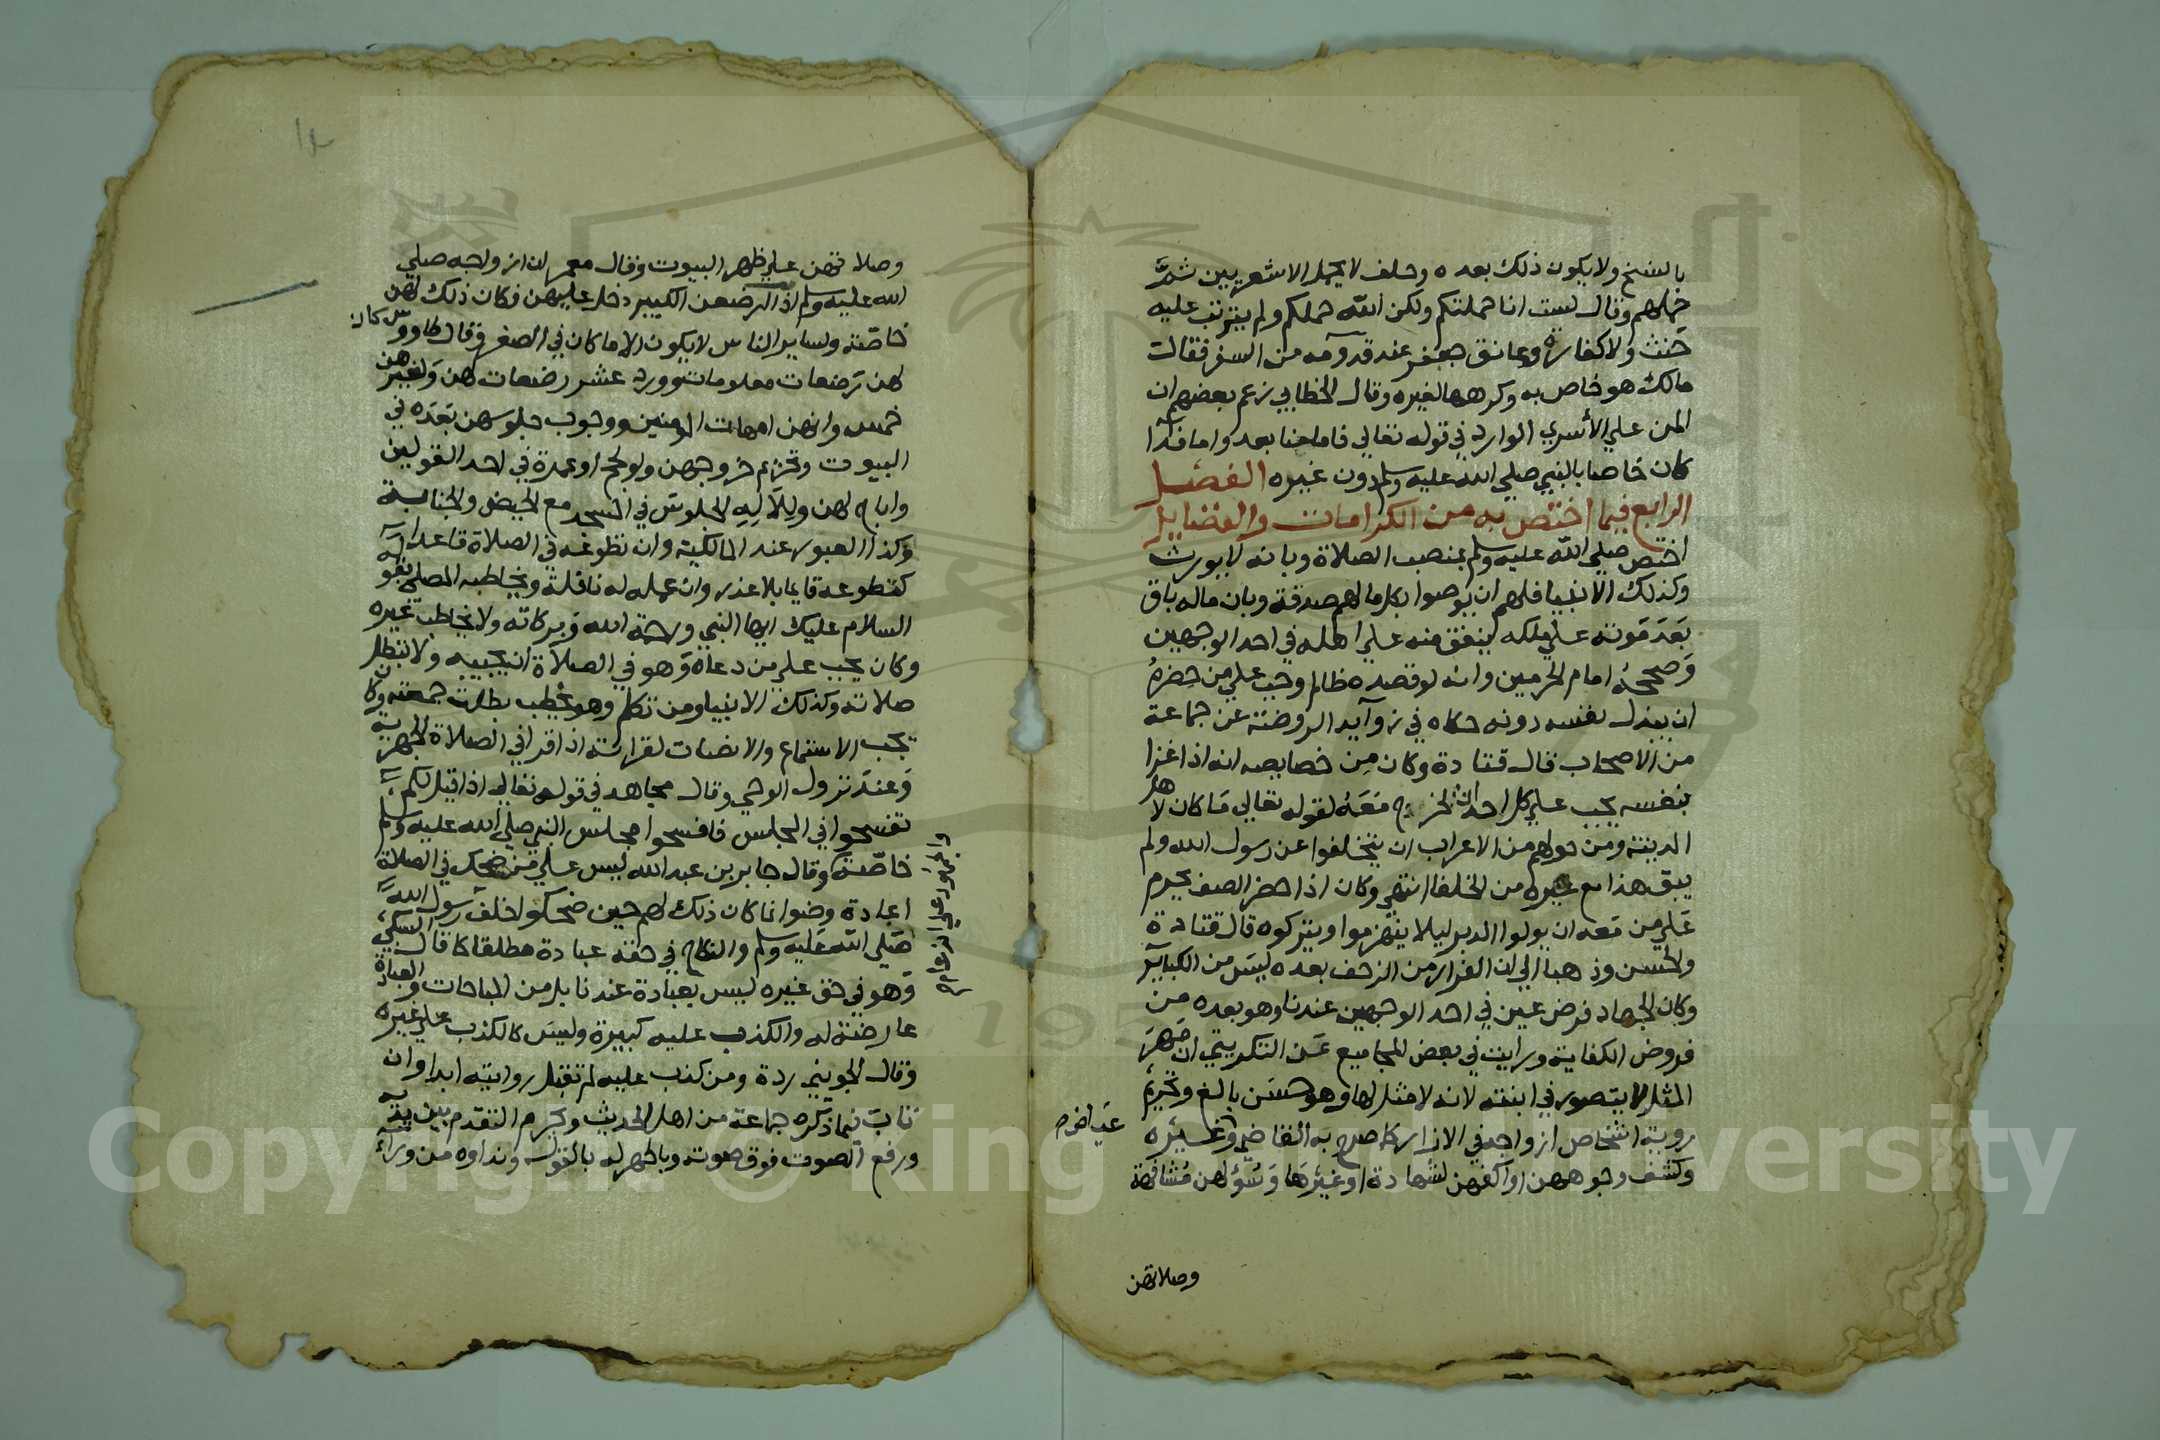 بالنسخ ولا يكون ذلك بعده وحلف لا يحمل الاشعريين ثمَّ
حملهم وقال لست انا حملتكم ولكن الله حملكم ولم يترتب عليه
حنث ولا كفارة وعانق جعفر عند قدومه من السفر فقالت
مالك هو خاص به وكرهها لغيره وقال الخطابي زعم بعضهم ان
المن علي الأسري الوارد في قوله تعالي فاما منا بعد واما فدآ
كان خاصا بالنبي صلي الله عليه وسلم دون غيره الفصل
الرابع فيما اختص به من الكرامات والفضايل
اختص صلي الله عليه وسلم بمنصب الصلاة وبانه لا يورث
وكذلك الانبيا فلهم ان يوصوا بكل مالهم صدقة وبان ماله باق
بعد موته علي ملكه ينفق منه علي اهله في احد الوجهين
وصححهُ امام الحرمين وانه لو قصده ظالم وجب علي من حضرهُ
ان يبذل نفسه دونه حكاه في زوآيد الروضة عن جماعة
من الاصحاب قال قتادة وكان من خصايصه انه اذا غزا
بنفسه يجب علي كل احد ان الخروج معهُ لقوله تعالي ما كان لاهل
المدينة ومن حولهم من الاعراب ان يتخلفوا عن رسول الله ولم
يبق هذا مع غيره من الخلفا انتهي وكان اذا حضر الصف يحرم
علي من معه ان يولوا الدبر ليلا ينهزموا ويتركوه قال قتادة
والحسن وذهبا الي ان الفرار من الزحف بعده ليس من الكبآير
وكان الجهاد فرض عين في احد الوجهين عندنا وهو بعده من
فروض الكفاية ورايت في بعض المجاميع عن التكريتي ان مهر
المثل لا يتصور في ابنته لانه لا مثل لها وهو حسن بالغ وتحريم
روية اشخاص ازواجه في الازار كما صرح به القاضي وغيره
عياض
وكشف وجوههن او اكفهن لشهادة او غيرها وسؤلهن مشافهة
وصلاتهن
وصلاتهن علي ظهر البيوت وقال معمر ان ازواجه صلي
الله عليه وسلم اذا ارضعن الكبير دخل عليهن فكان ذلك لهن
خاصة ولساير الناس لا يكون الا ما كان في الصغر وقال طاووس كان
لهن رضعات معلومات وورد عشر رضعات لهن ولغيرهن
خمس وانهن امهات المومنين ووجوب جلوسهن بعده في
البيوت وتحريم خروجهن ولو لحج او عمرة في احد القولين
واباح لهن ولآله الجلوس في المسجد مع الحيض والجنابة
وكذا العبور عند المالكية وان تطوعه في الصلاة قاعدا
كتطوعه قايما بلا عذر وان عمله له نافلة ويخاطبه المصلي بقوله
السلام عليك ايها النبي ورحمة الله وبركاته ولا يخاطب غيره
وكان يجب علي من دعاه وهو في الصلاة ان يجيبه ولا تبطل
صلاته وكذلك الانبيا ومن تكلم وهو يخطب بطلت جمعته وكان
يجب الاستماع والانصات لقراءته اذا قرا في الصلاة الجهرية
وعند نزول الوحي وقال مجاهد في قوله تعالي اذا قيل لكم
تفسحوا في المجلس فافسحوا مجلس النبي صلي الله عليه وسلم
خاصّة وقال جابر بن عبد الله ليس علي من ضحك في الصلاة
اعادة وضو انما كان ذلك لهم حين ضحكوا خلف رسول الله
صلي الله عليه وسلم والنكاح في حقه عبادة مطلقا كما قال السبكي
وهو في حق غيره ليس بعبادة عندنا بل من المباحات والعبادة
عارضة له والكذب عليه كبيرة وليس كالكذب علي غيره
وقال الجويني ردة ومن كذب عليه لم تقبل روايته ابدا وان
تاب فيما ذكره جماعة من اهل الحديث وحرم التقدم بين يديه
ورفع الصوت فوق صوته وبالجهر له بالقول ونداوه من ورآء
Copyright © King Saud University